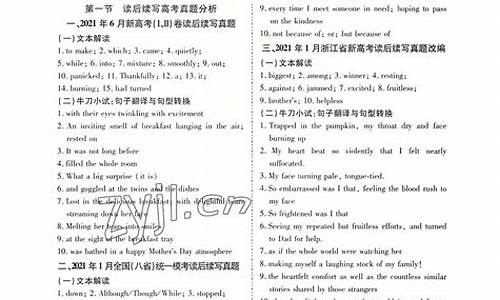 第一节 读后续写高考真题分析
一、2021 年 6 月新高考(I,II)卷读后续写真题
(一)文本解读
1. to make; 2. which; 3. came; 4. quietly;
5. while; 6. into; 7. mixture; 8. smoothly; 9. out;
10. panicked; 11. Thankfully; 12. a; 13. it;
14. burning; 15. had turned
(二)牛刀小试:句子翻译与句型转换
1. with their eyes twinkling with excitement
2. An inviting smell of breakfast hanging in the air;
rested on
3. It was not long before
4. filled the whole room
5. What a big surprise (it is)
6. and goggled at the twins and the dishes
7. Lost in the delicious breakfast, with delightful tears
streaming down her face
8. Melting her tears into smiles
9. at the sight of the breakfast tray
10. was bathed in a happy Mother's Day atmosphere
二、2021 年 1 月全国(八省)统一模考读后续写真题
(一)文本解读
1. down; 2. Although/Though/While; 3. stopped;
9. every time I meet someone in need; hoping to pass
on the kindness
10. not because of; or; but because of
三、2021 年 1 月浙江省新高考读后续写真题改编
(一)文本解读
1. biggest; 2. among; 3. winner; 4. resting;
5. against; 6. jammed; 7. excited; 8. fruitless;
9. brother's; 10. helpless
(二)牛刀小试:句子翻译与句型转换
1. Trapped in the pumpkin, my throat dry and face
burning up
2. My heart beat so violently that I felt nearly
suffocated.
3. My face turning pale, tongue-tied.
4. So embarrassed was I that, feeling the blood rush to
my face
5. So frightened was I that
6. Seeing my repeated but fruitless efforts, and turned
to Dad for help.
7. as if the whole world were watching her
8. making myself a laughing stock of my family!
9. the heartfelt comfort as well as the constant similar
stories shared by those strangers
zyjl.cn